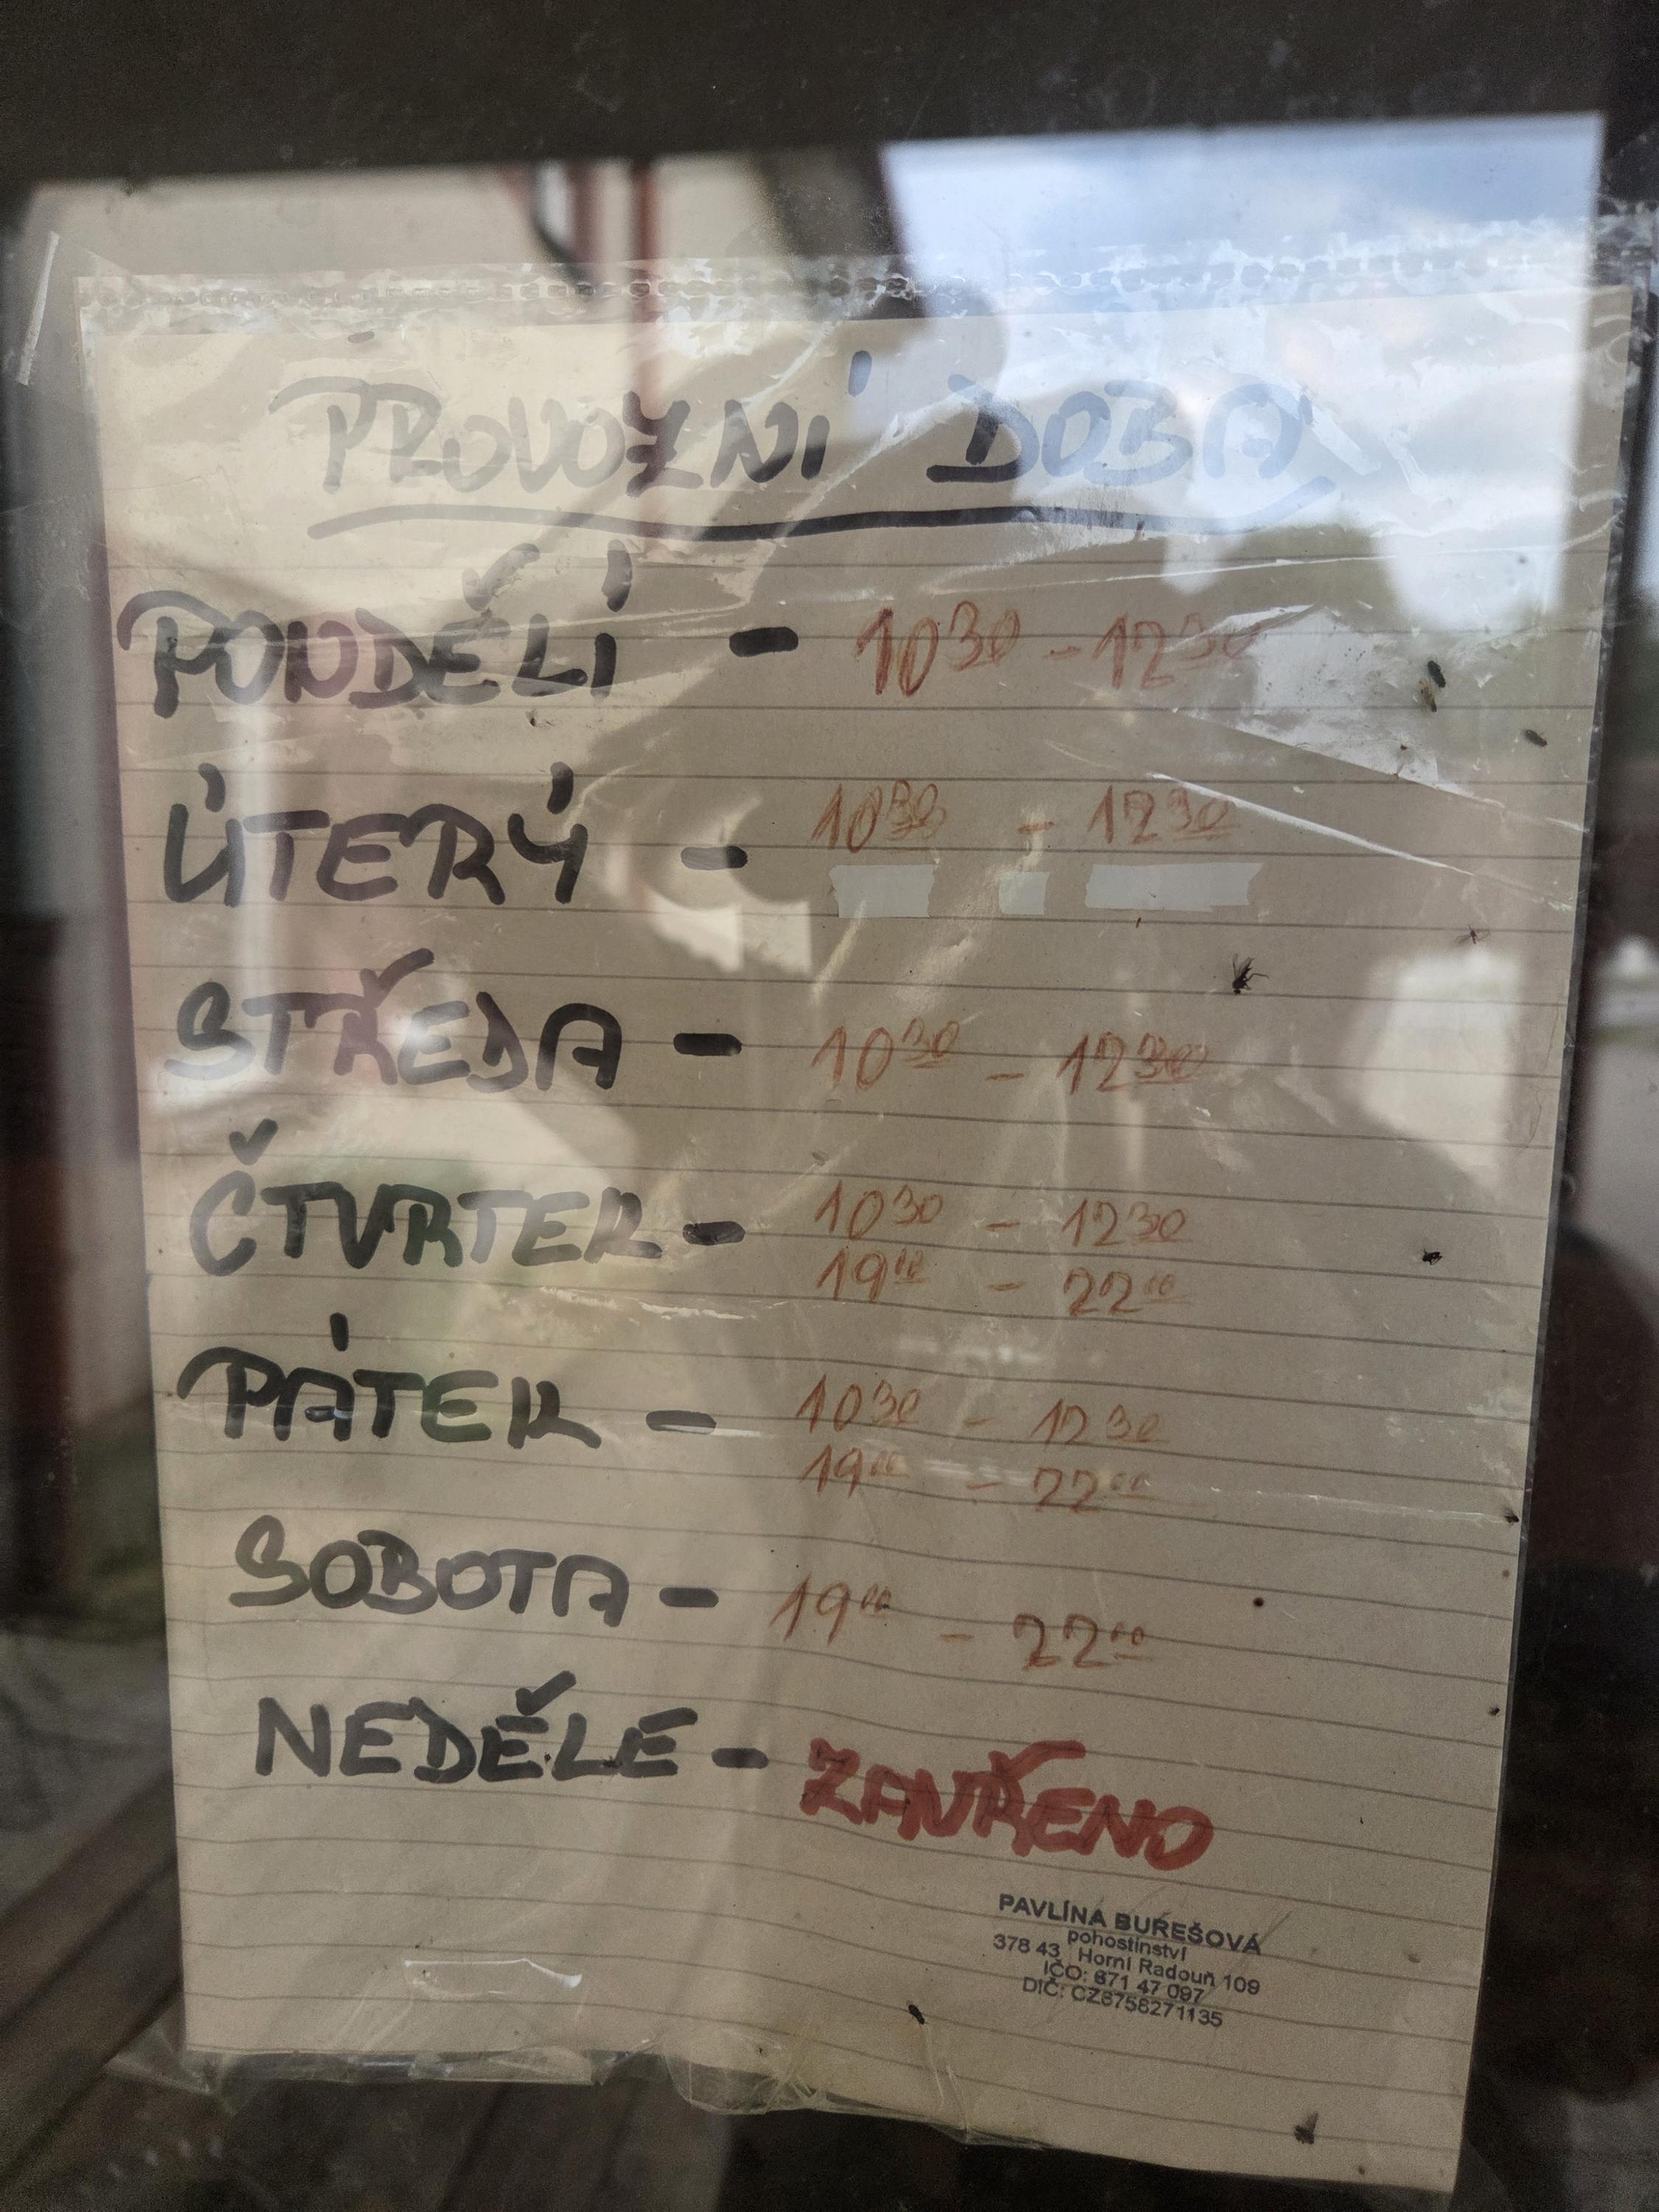 PROVOZNÍ DOBA
PONDĚLÍ - 10³⁰ - 12³⁰
ÚTERÝ - 10³⁰ - 12³⁰
STŘEDA - 10³⁰ - 12³⁰
ČTVRTEK - 10³⁰ - 12³⁰
19⁰⁰ - 22⁰⁰
PÁTEK - 10³⁰ - 12³⁰
19⁰⁰ - 22⁰⁰
SOBOTA - 19⁰⁰ - 22⁰⁰
NEDĚLE - ZAVŘENO
PAVLÍNA BUREŠOVÁ
pohostinství
378 43 Horní Radouň 109
IČO: 671 47 097
DIČ: CZ6756271135